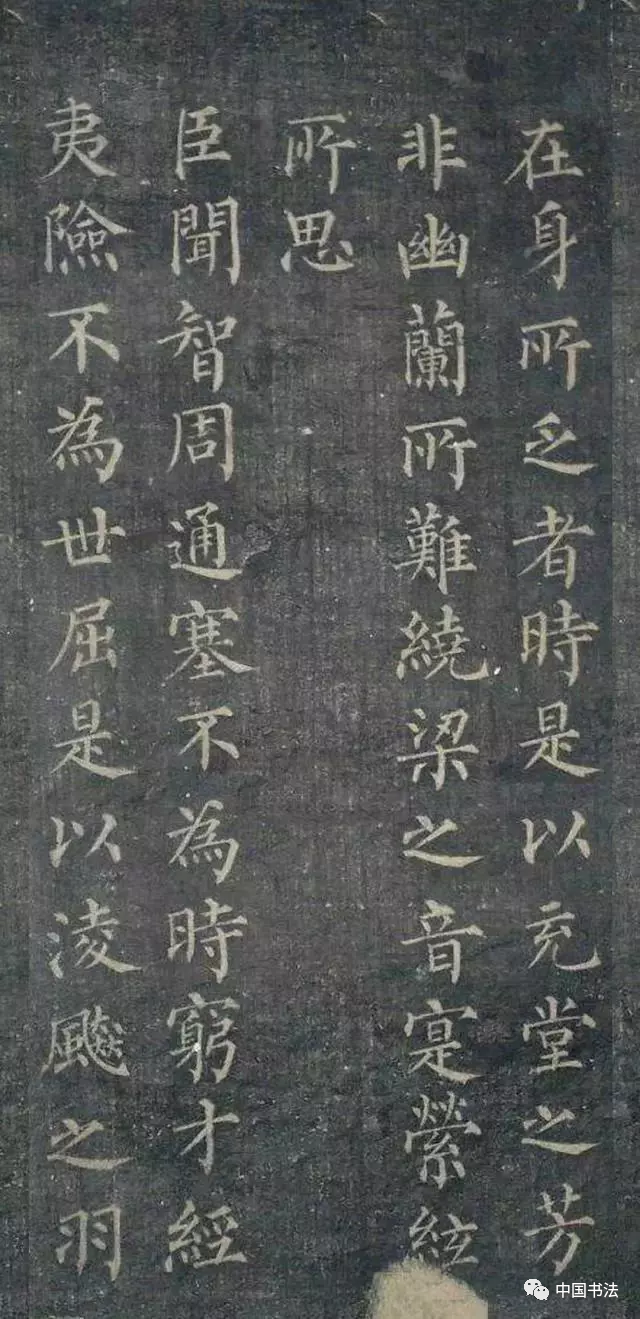 在身所乏者時是以充堂之芳
非幽蘭所難繞梁之音寔縈絃
所思
臣聞智周通塞不為時窮才經
夷險不為世屈是以淩飈之羽
中国书法